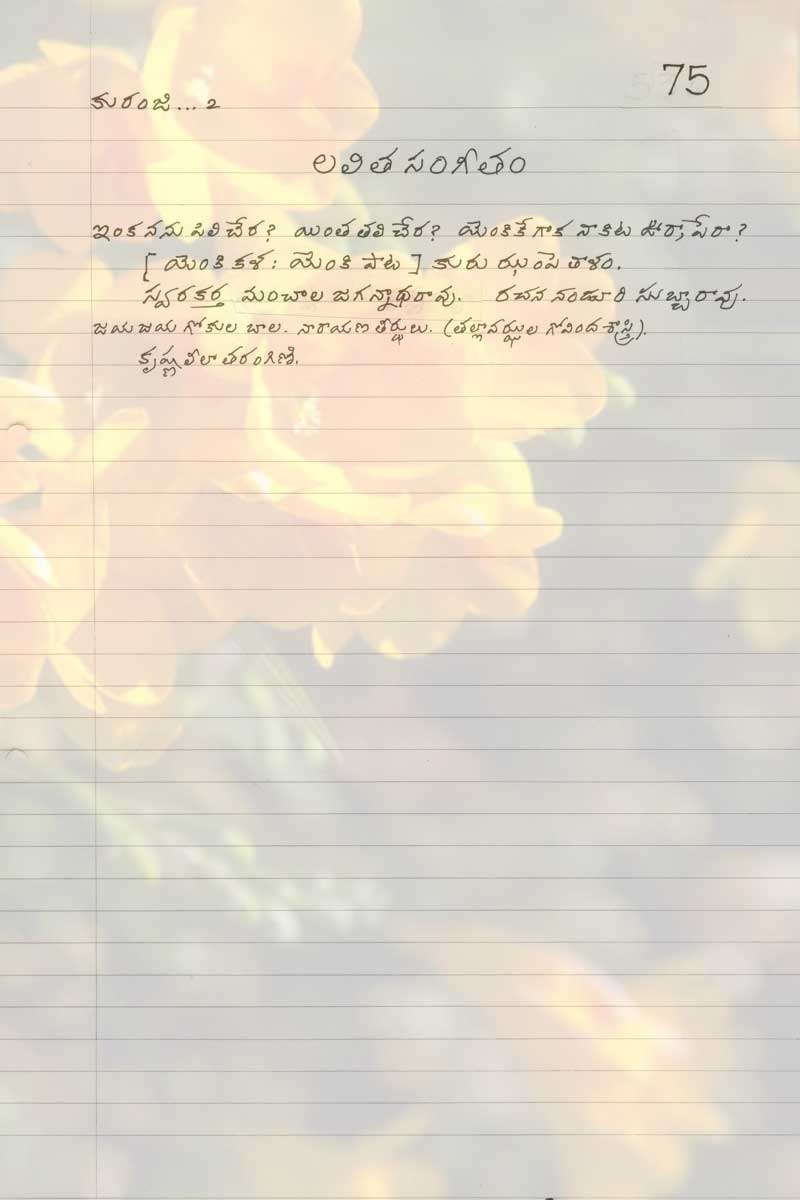 75
కురంజి... ౨
లలిత సంగీతం
ఇంక నను పిలిచేర? యింత తలిచేర? యెంకికే గాక నాకిట
[ యెంకి కళ: యెంకి పాట ] కురు ఝంపె తాళం.
స్వరకర్త మంచాల జగన్నాథరావు. రచన నండూరి సుబ్బారావు.
జయ జయ గోకుల బాల. నారాయణ తీర్థులు. (తల్లావఝ్ఝల గోవింద శాస్త్రి).
కృష్ణ లీలా తరంగిణి.